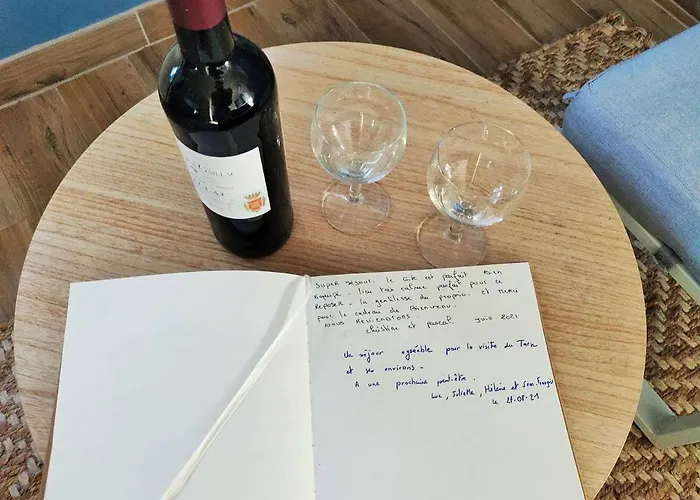 GAILLAC
SUPER SEJOUR. le Gite est parfait Bien
Equipé. lieu très calme parfait pour se
REPOSER. la gentillesse du proprio. et Merci
pour le cadeau de Bienvenu.
NOUS REVIENDRONS
Christine et pascal. Juin 2021
Un séjour agréable pour la visite du Tarn
et ses environs.
A une prochaine peut-être.
Luc, Juliette, Hélène et Jean-François
le 27-08-21